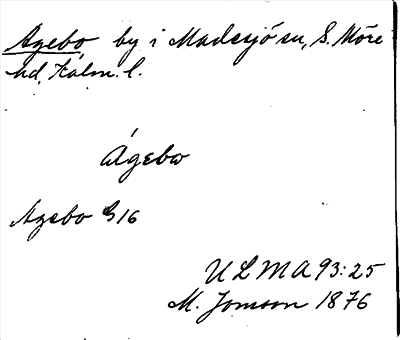 Agebo by i Madesjö sn, S. Möre
hd, Kalm. l.
Ágebω
Agebo G 16
ULMA 93:25
M. Jonsson 1876